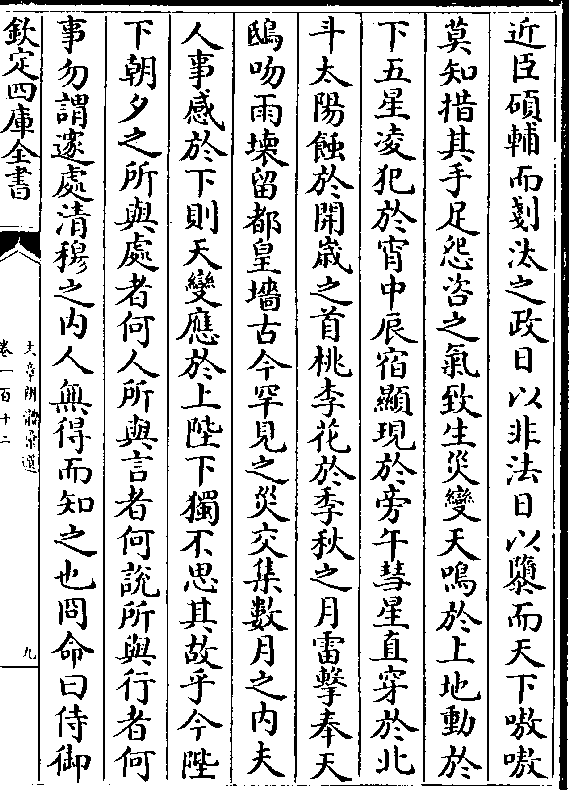 近臣碩輔而剗汰之政日以非法日以隳而天下嗷嗷
莫知措其手足怨咨之氣致生災變天鳴於上地動於
下五星凌犯於宵中辰宿顯現於旁午彗星直穿於北
斗太陽蝕於開歲之首桃李花於季秋之月雷擊奉天
鴟吻雨壊留都皇墻古今罕見之災交集數月之内夫
人事感於下則天變應於上陛下獨不思其故乎今陛
下朝夕之所與處者何人所與言者何說所與行者何
事勿謂邃處清穆之内人無得而知之也冏命曰侍御
欽定四庫全書
文章辨體彚選
卷一百十二
九